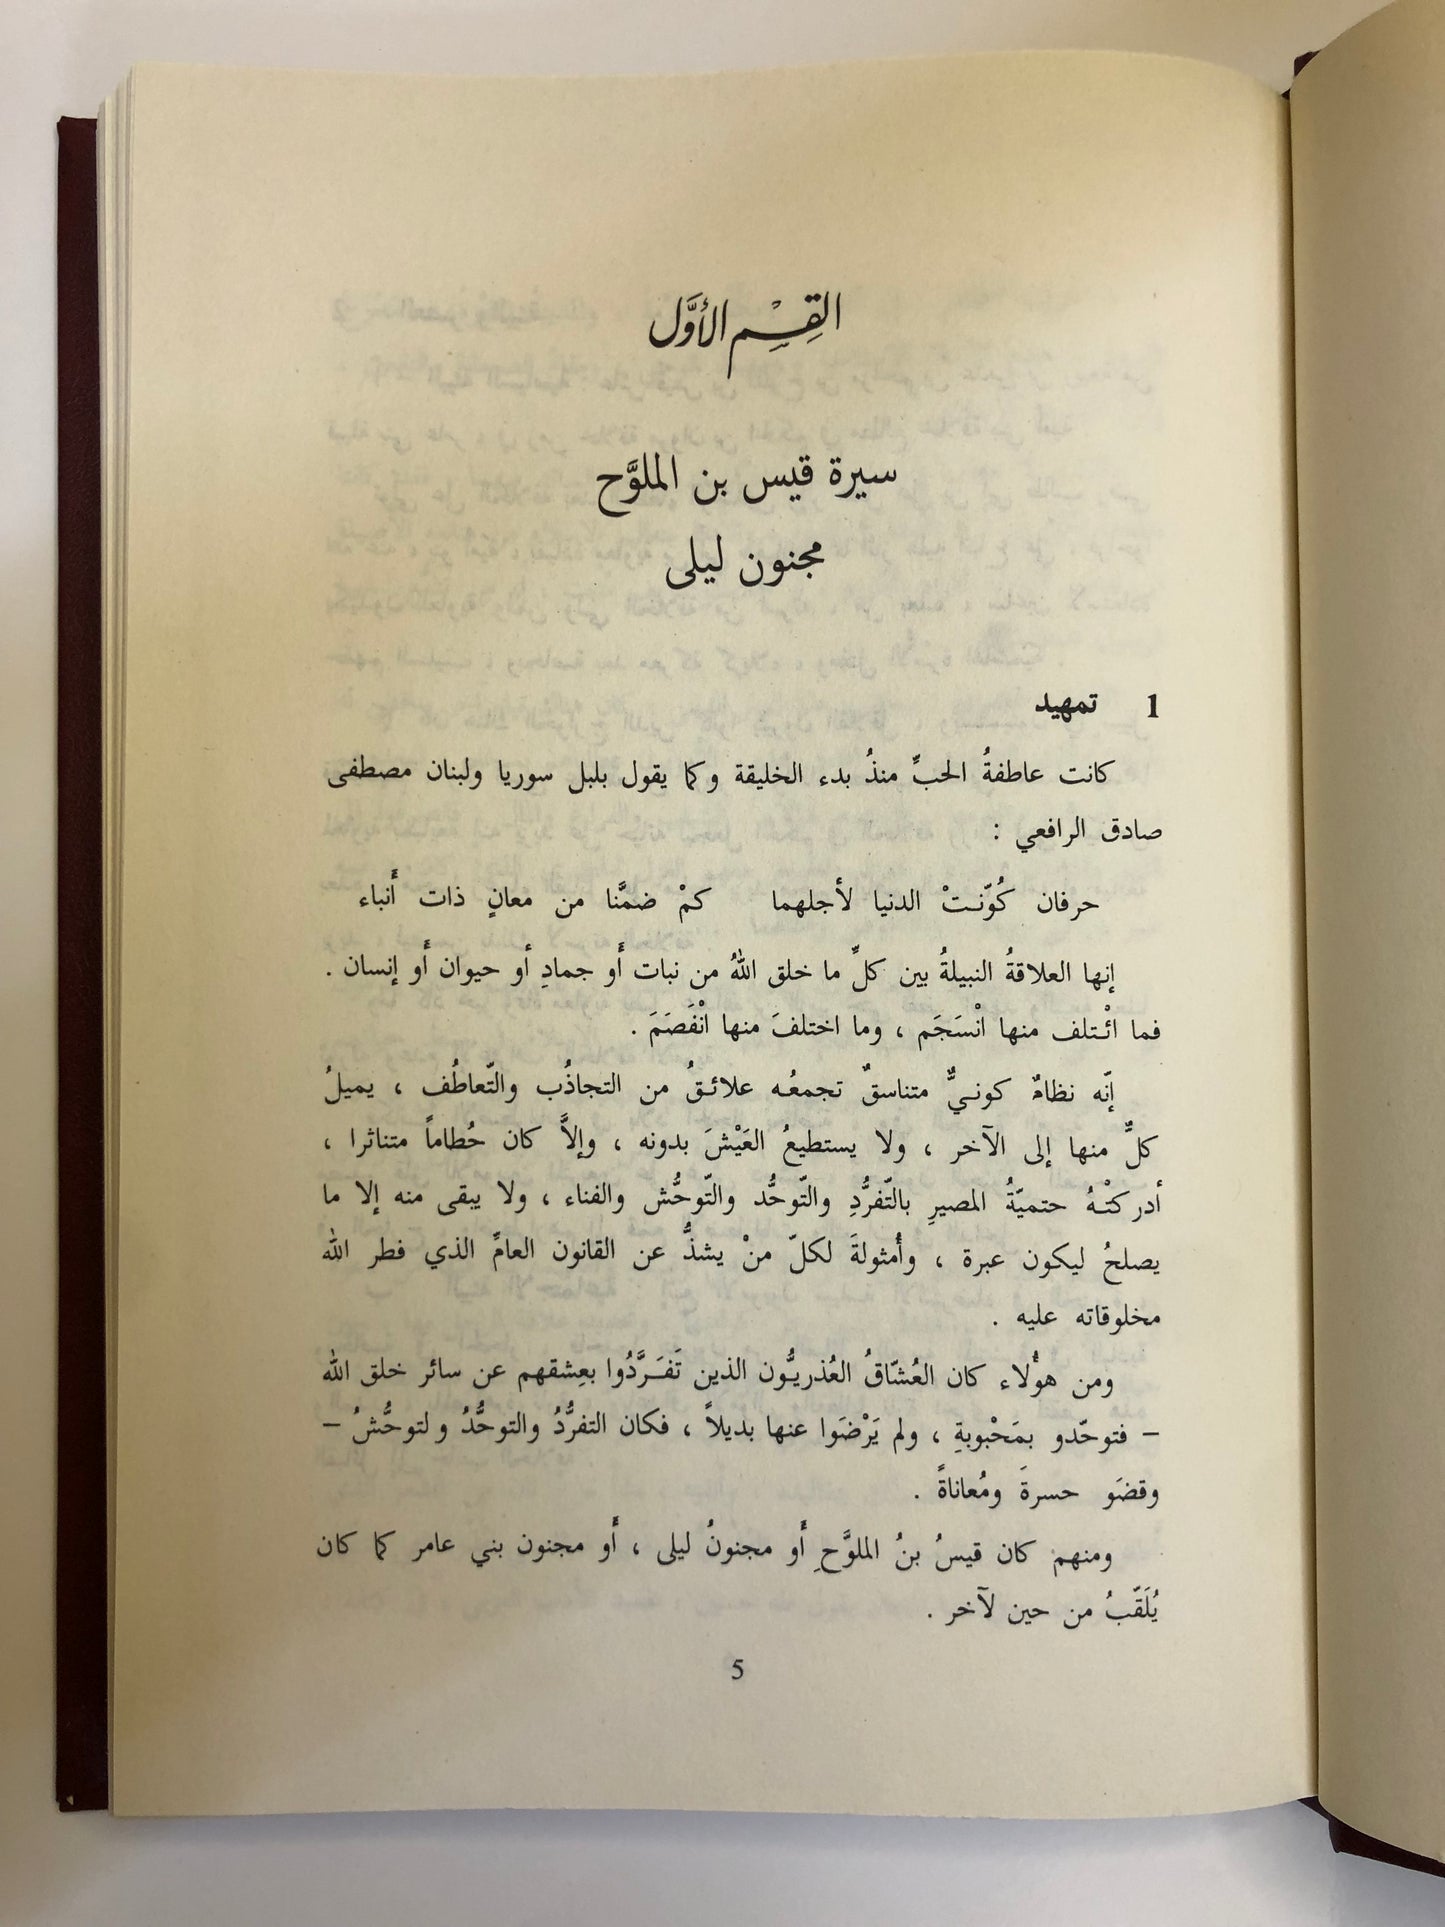 القِسْم الأوَّل
سيرة قيس بن الملوَّح
مجنون ليلى
1 تمهيد
كانت عاطفةُ الحبِّ منذُ بدء الخليقة وكما يقول بلبل سوريا ولبنان مصطفى
صادق الرافعي :
حرفان كُوّنتْ الدنيا لأجلهما كمْ ضمَّنا من معانٍ ذات أَنباء
إنها العلاقةُ النبيلةُ بين كلِّ ما خلق اللهُ من نبات أَو جمادِ أو حيوان أَو إنسان .
فما ائْتلف منها انْسَجَم ، وما اختلفَ منها انْفَصَمَ .
إنّه نظامٌ كونيٌّ متناسقٌ تجمعُه علائقُ من التجاذُب والتّعاطُف ، يميلُ
كلٌّ منها إلى الآخر ، ولا يستطيعُ العَيْشَ بدونه ، وإلاَّ كان حُطاماً متناثرا ،
أدركتْهُ حتميّةُ المصيرِ بالتّفرُّدِ والتّوحُّد والتّوحُّش والفناء ، ولا يبقى منه إلا ما
يصلحُ ليكون عبرة ، وأُمثولةَ لكلّ منْ يشذُّ عن القانون العامِّ الذي فطر الله
مخلوقاته عليه .
ومن هؤُلاء كان العُشّاقُ العُذريُّون الذين تَفَرَّدُوا بعِشقهم عن سائر خلق الله
– فتوحّدو بمَحْبوبةِ ، ولم يَرْضَوا عنها بديلاً ، فكان التفرُّدُ والتوحُّدُ ولتوحُّشُ –
وقضَو حسرةَ ومُعاناةً .
ومنهم كان قيسُ بنُ الملوَّحِ أَو مجنونُ ليلى ، أَو مجنون بني عامر كما كان
يُلَقّبُ من حين لآخر .
5